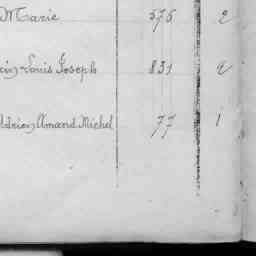 Marie 575 2
Louis Joseph 831 2
Adrien Amand Michel 77 1